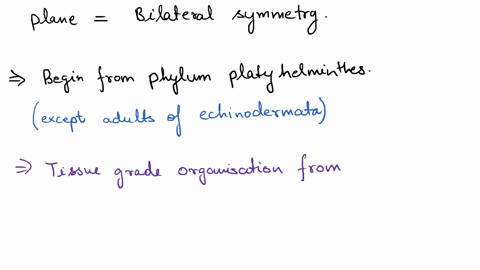 plane = Bilateral symmetry.
⇒ Begin from phylum platyhelminthes.
(except adults of echinodermata)
⇒ Tissue grade organisation from